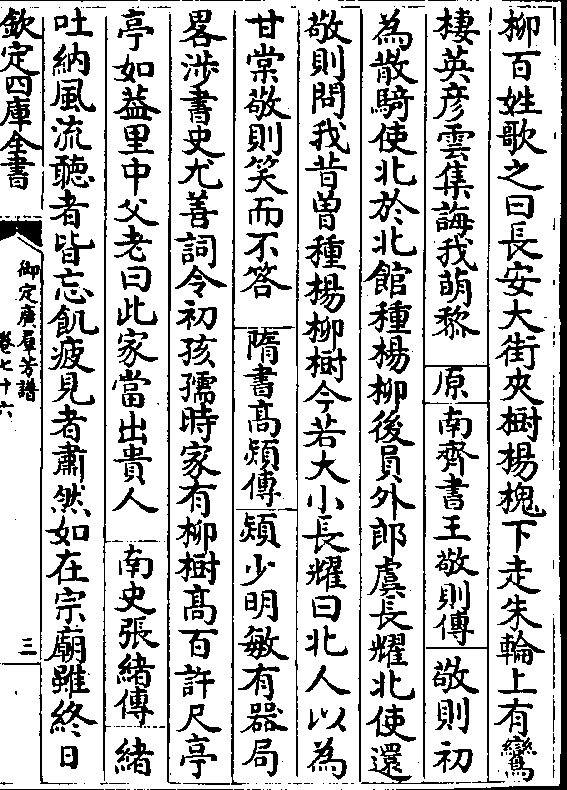 柳百姓歌之曰長安大街夾樹楊槐下走朱輪上有鸞
棲英彦雲集誨我萌黎 原 南齊書王敬則傳 敬則初
為散騎使北於北館種楊柳後員外郎虞長耀北使還
敬則問我昔曽種楊柳樹今若大小長耀曰北人以為
甘棠敬則笑而不答 隋書髙熲傳 熲少明敏有器局
畧涉書史尤善詞令初孩孺時家有柳樹髙百許尺亭
亭如葢里中父老曰此家當出貴人 南史張緒傳 緒
吐納風流聽者皆忘飢疲見者肅然如在宗廟雖終日
欽定四庫全書
御定廣羣芳譜
卷七十六
三